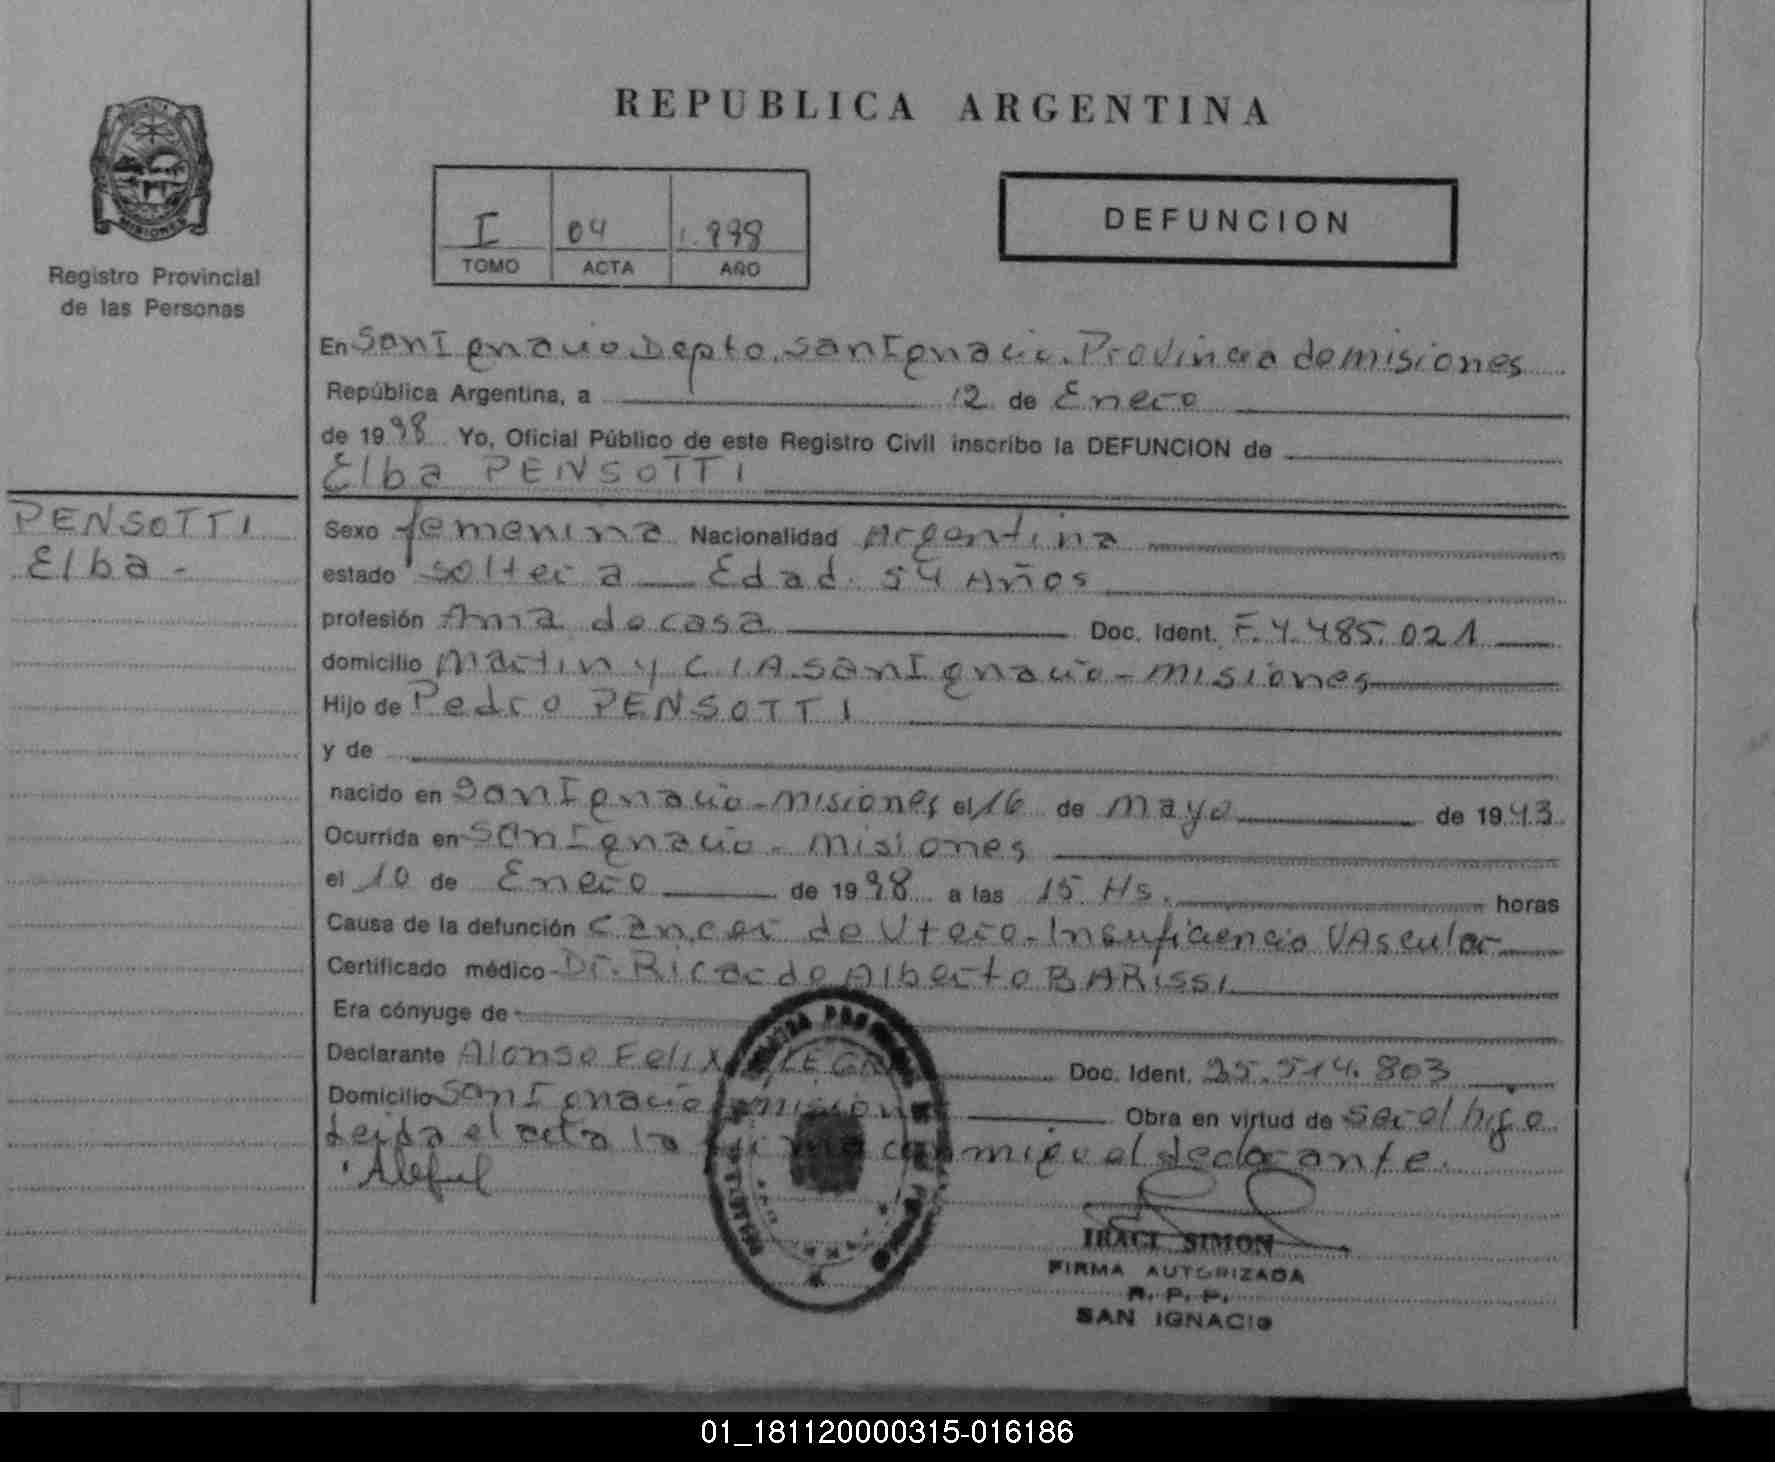 REPUBLICA ARGENTINA
I 04 1.998
TOMO ACTA AÑO
DEFUNCION
MISIONES
Registro Provincial
de las Personas
PENSOTTI
Elba -
En San Ignacio Depto. San Ignacio. Provincia de misiones
República Argentina, a 12 de Enero
de 1998 Yo, Oficial Público de este Registro Civil inscribo la DEFUNCION de
Elba PENSOTTI
Sexo femenina Nacionalidad Argentina
estado soltera Edad. 54 Años
profesión Ama de casa Doc. Ident. F. 4.485.021
domicilio Martin y CIA San Ignacio - misiones
Hijo de Pedro PENSOTTI
y de
nacido en San Ignacio - misiones el 16 de mayo de 1943
Ocurrida en San Ignacio - misiones
el 10 de Enero de 1998 a las 15 Hs. horas
Causa de la defunción Cancer de Utero - Insuficiencia VAscular
Certificado médico Dr. Ricardo Alberto BARISSI
Era cónyuge de
Declarante Alonso Felix Doc. Ident. 25.514.803
Domicilio San Ignacio misiones Obra en virtud de ser el hijo
Leida el acta la firma conmigo el declarante.
IRACI SIMON
FIRMA AUTORIZADA
R. P. P.
SAN IGNACIO
01_181120000315-016186